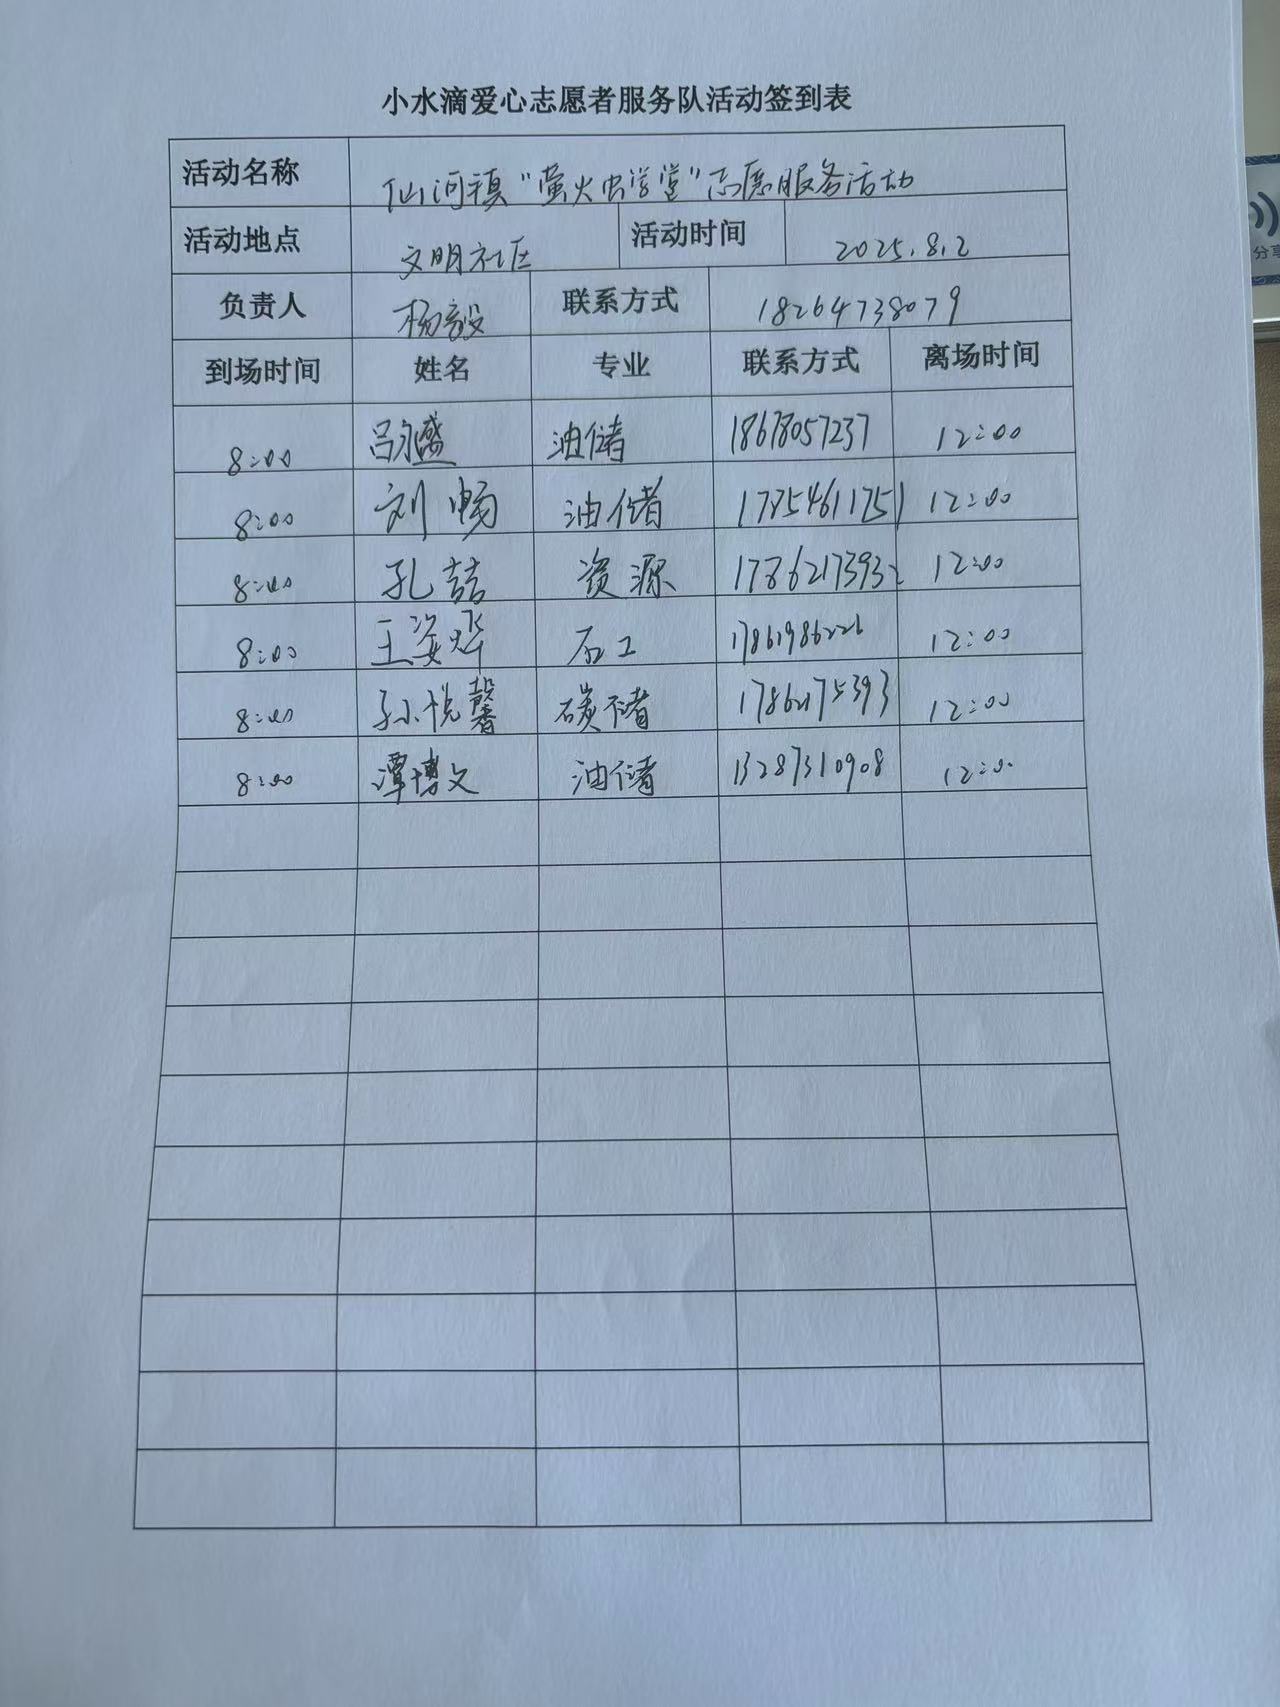 小水滴爱心志愿者服务队活动签到表
活动名称 仙河镇“萤火虫学堂”志愿服务活动
活动地点 文明社区 活动时间 2025.8.2
负责人 杨毅 联系方式 18264738079
到场时间 姓名 专业 联系方式 离场时间
8:00 吕永盛 油储 18678057237 12:00
8:00 刘畅 油储 17854611751 12:00
8:00 孔喆 资源 17862173932 12:00
8:00 王姿烨 石工 17861986226 12:00
8:00 孙悦馨 碳储 17862175393 12:00
8:00 谭博文 油储 13287310908 12:00
分享